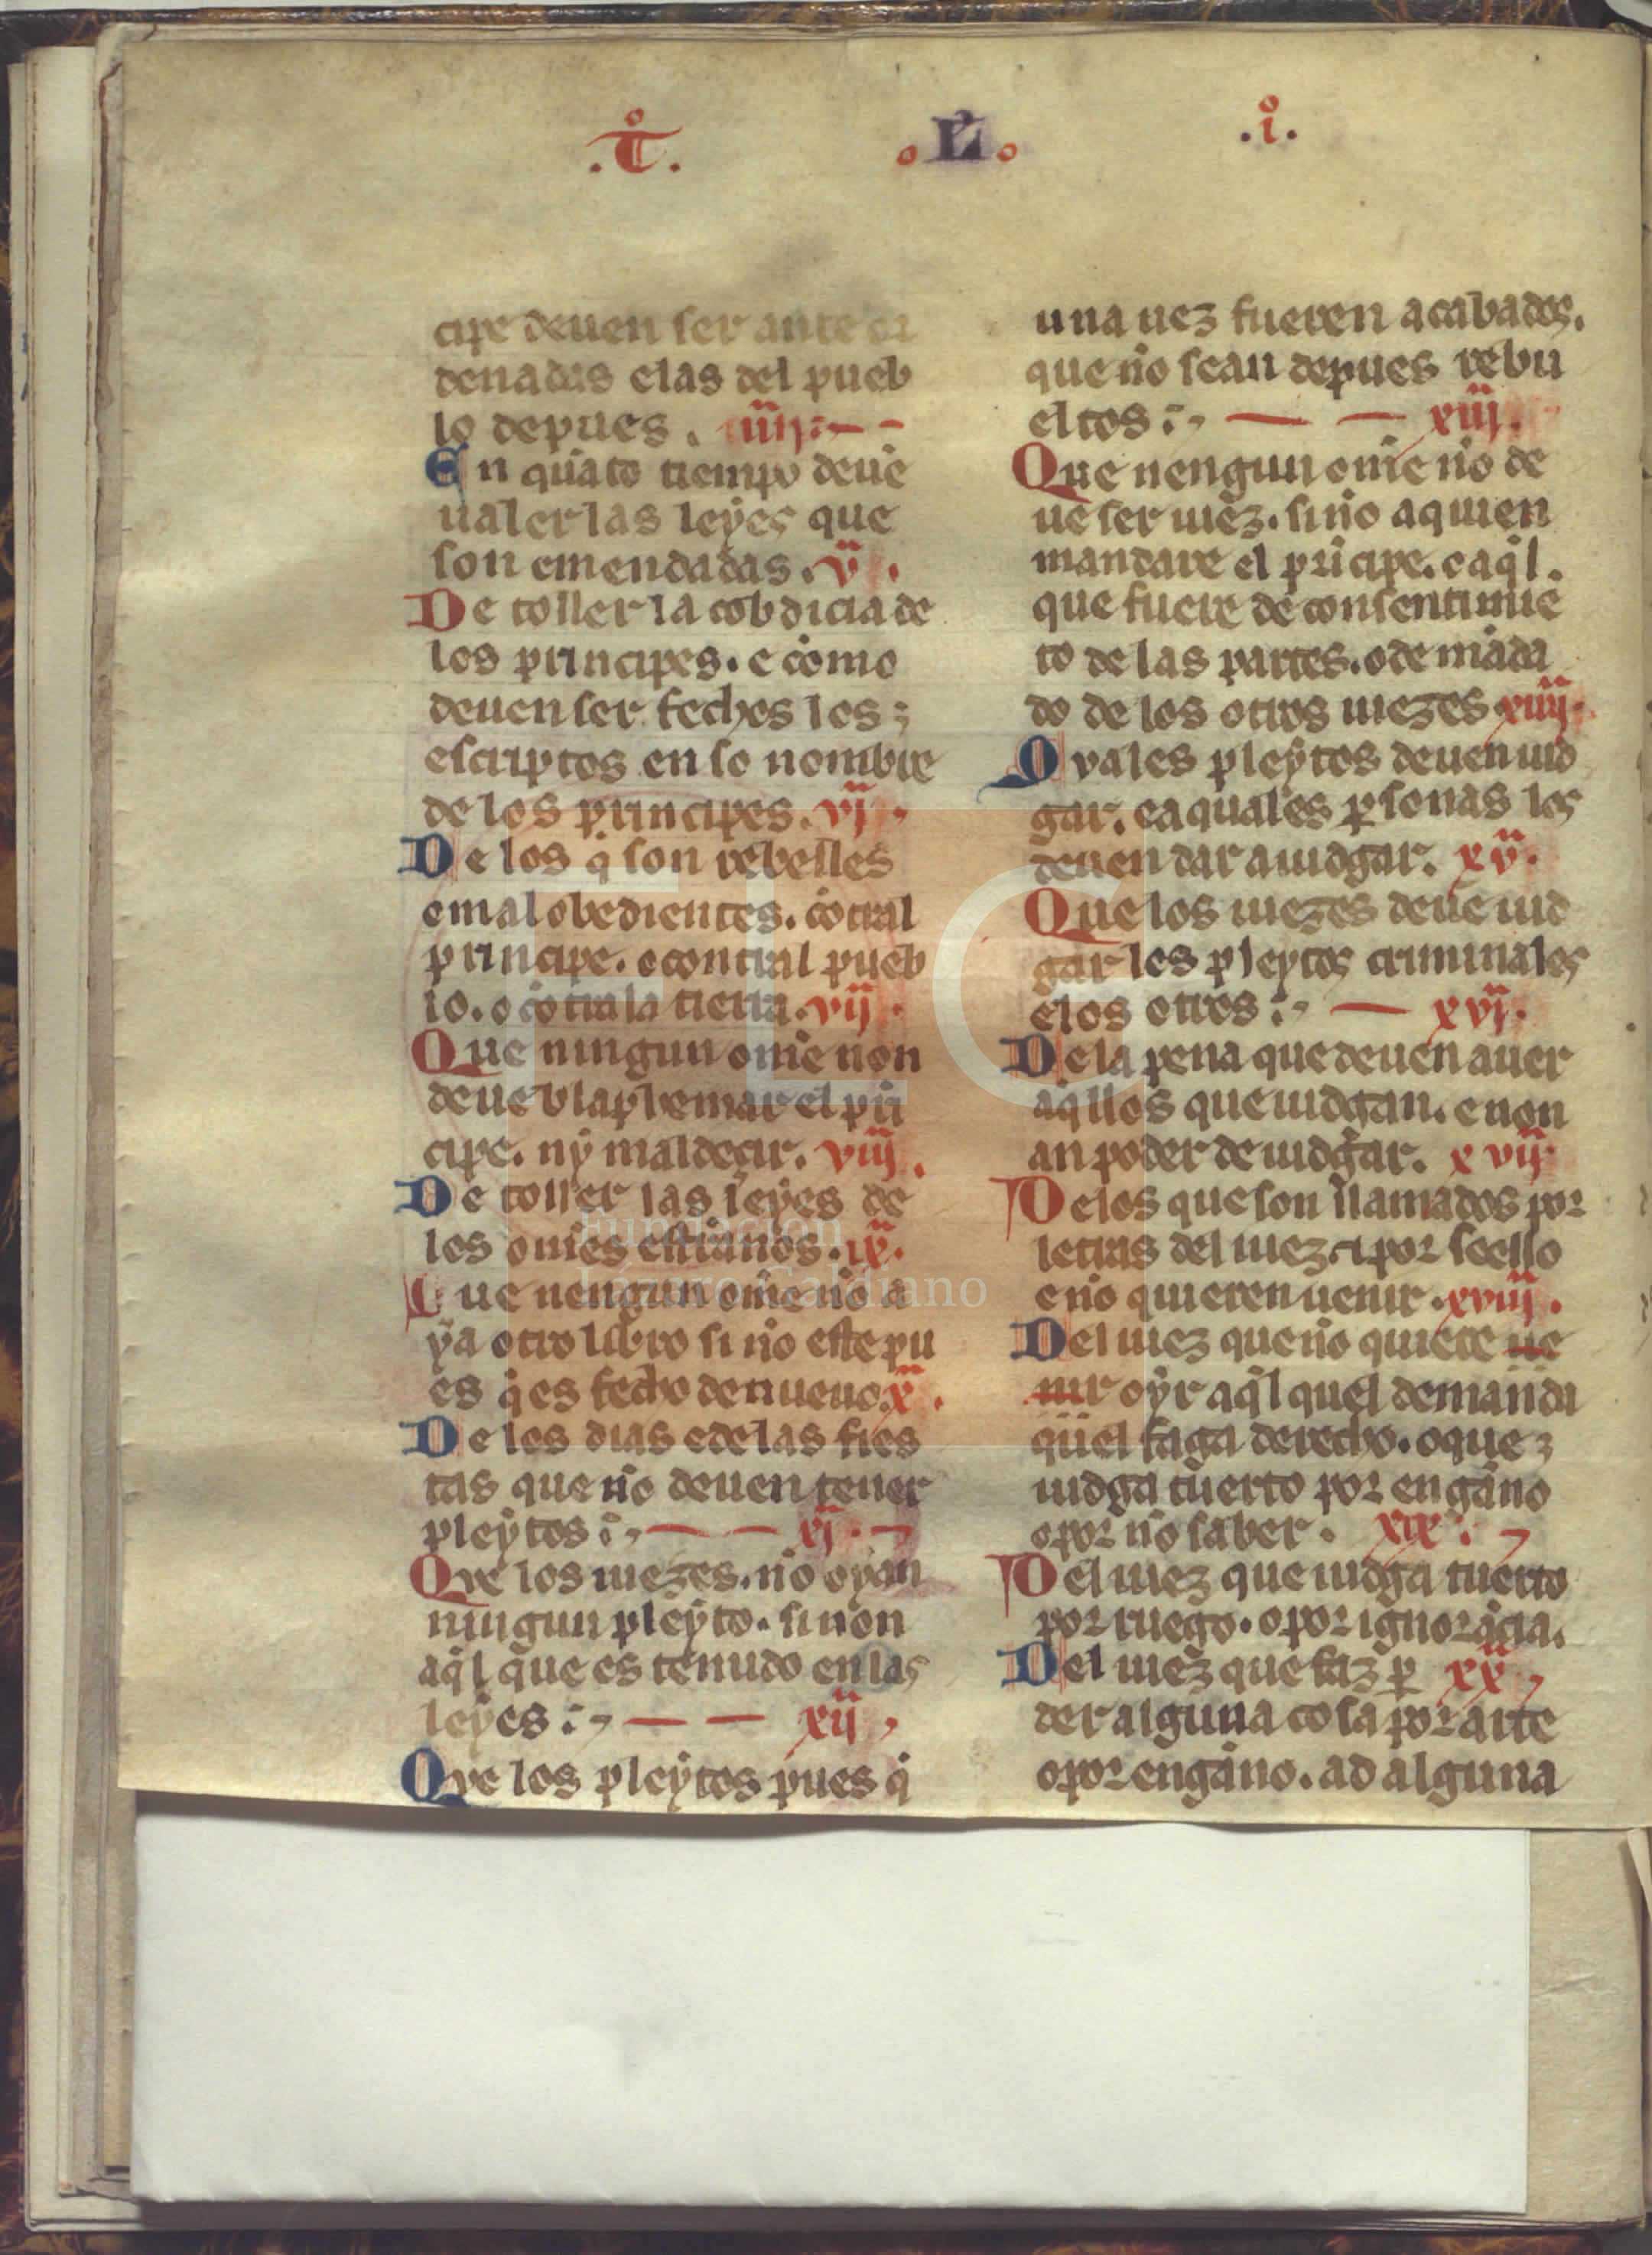 .T. .L. .i.
cipe deuen ser ante
denadas elas del pueb
lo depues. iiij
En quāto tiempo deuē
ualer las leyes que
son emendadas. v
De toller la cobdicia de
los principes. e cōmo
deuen ser fechos los
escriptos en so nombre
de los principes. vj
De los q̄ son rebelles
e mal obedientes. cōtral
principe. o contral pueb
lo. o cōtra la tierra. vij
Que ningun om̄e non
deue blasphemar el prī
cipe. ny maldecir. viij.
De toller las leyes de
los om̄es estranos. ix.
Que nengun om̄e nō a
ya otro libro si nō este pu
es q̄ es fecho de nueuo. x.
De los dias e de las fies
tas que nō deuen tener
pleytos xj.
Qve los iuezes. nō oyan
ningun pleyto. si non
aq̄l que es tenudo en las
leyes xij
Qve los pleytos pues q̄
una uez fueren acabados.
que nō sean depues rebu
eltos xiij.
Que nengun om̄e nō de
ue ser iuez. si nō a quien
mandare el prīcipe. e aq̄l.
que fuere de consentimiē
to de las partes. o de māda
do de los otros iuezes xiiij.
Qvales pleytos deuen iud
gar. e a quales ꝑsonas los
deuen dar a iudgar. xv.
Que los iuezes deuē iud
gar los pleytos criminales
e los otros xvj.
De la pena que deuen auer
aq̄llos que iudgan. e non
an poder de iudgar. xvij
De los que son llamados por
letras del iuez. ⁊ por seello
e nō quieren uenir. xviij.
Del iuez que nō quiere ue
nir oyr aq̄l quel demanda
quel faga derecho. o que
iudga tuerto por engāno
o por nō saber. xix
Del iuez que iudga tuerto
por ruego. o por ignorācia.
Del iuez que faz ꝑ xx
der alguna cosa por arte
o por engāno. ad alguna
Fundación
Lázaro Galdiano
FLG